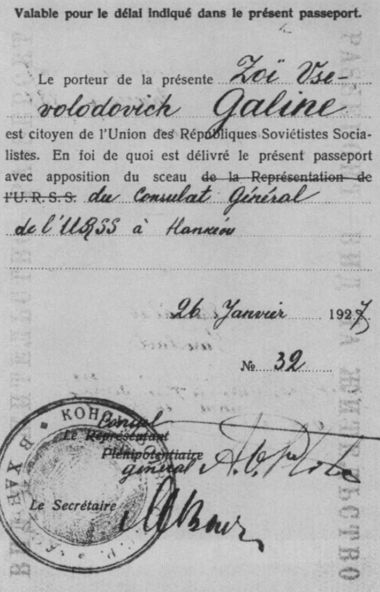 Valable pour le délai indiqué dans le présent passeport.
Le porteur de la présente Zoï Vse-
volodovich Galine
est citoyen de l'Union des Républiques Soviétistes Socia-
listes. En foi de quoi est délivré le présent passeport
avec apposition du sceau de la Représentation de
l'U.R.S.S. du Consulat Général
de l'URSS à Hankéou
26 Janvier 1927
№ 32
Consul
Le Représentant
Plénipotentiaire
général
Le Secrétaire